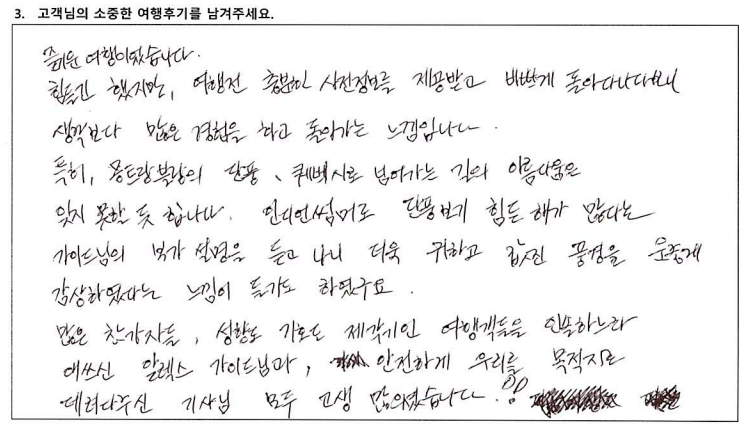 3. 고객님의 소중한 여행후기를 남겨주세요.
즐거운 여행이었습니다.
힘들긴 했지만, 여행전 충분히 사전정보를 제공받고 바쁘게 돌아다니다보니
생각보다 많은 경험을 하고 돌아가는 느낌입니다.
특히, 몽트랑블랑의 단풍, 퀘벡시로 넘어가는 길의 아름다움은
잊지 못할 듯 합니다. 인디언썸머로 단풍보기 힘든 해가 많다는
가이드님의 부가 설명을 듣고 나니 더욱 귀하고 값진 풍경을 운좋게
감상하였다는 느낌이 들기도 하였구요.
많은 참가자들, 성향도 기호도 제각기인 여행객들을 인솔하느라
애쓰신 알렉스 가이드님과, 안전하게 우리를 목적지로
데려다주신 기사님 모두 고생 많으셨습니다.